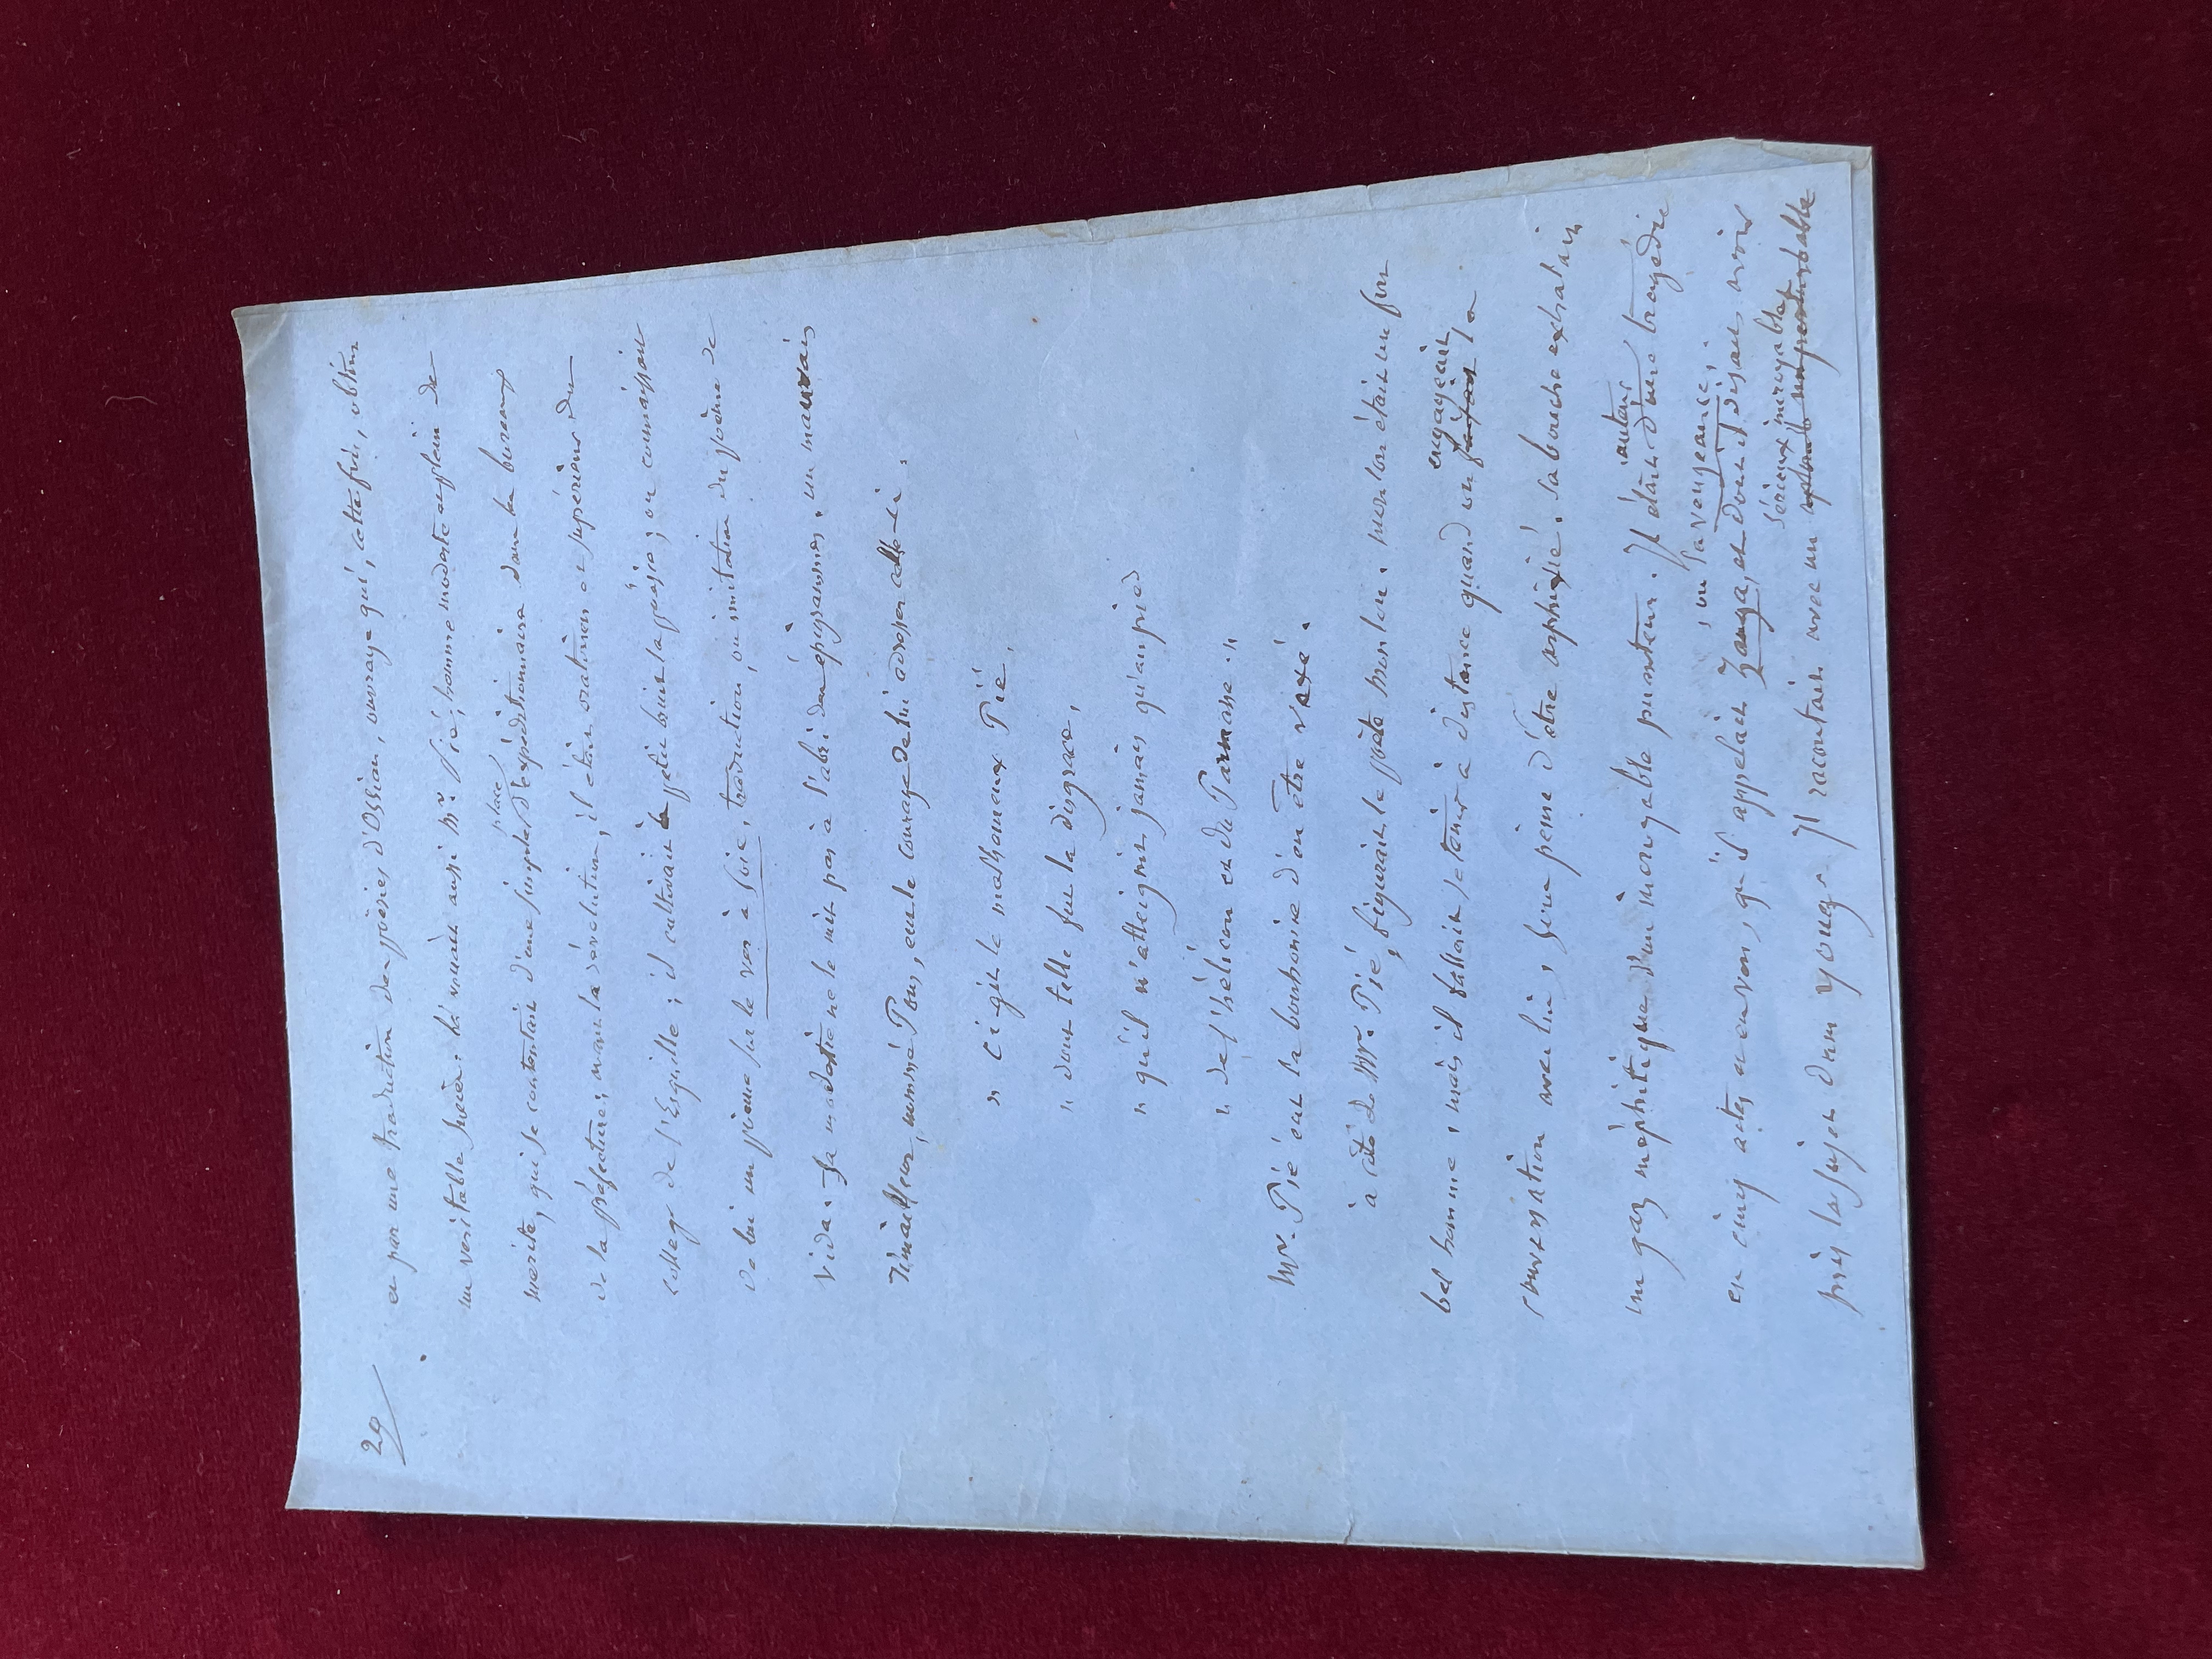 29
et par une traduction des poésies d'Ossian, ouvrage qui, cette fois, obtint
un veritable succès. là venait aussi Mr. Pié, homme modeste et plein de
merite, qui se contentait d'une simple place d'expéditionnaire dans les bureaux
de la préfecture; avant la révolution, il était oratorien et supérieur du
collège de l'Esquille; il cultivait à petit bruit la poésie; on connaissait
de lui un poeme sur le ver à soie, traduction, ou imitation du poème de
Vida. Sa modestie ne le mit pas à l'abri des épigrammes. un mauvais
rimailleur, nommé Pons, eut le courage de lui adresser celle-ci.
" Ci git le malheureux Pié,
" dont telle fut la disgrace,
" qu'il n'atteignit jamais qu'au pied
" de l'hélicon et du Parnasse."
Mr. Pié eut la bonhomie d'en être vexé.
à côté de Mr. Pié, figurait le poète Monlon. Monlon était un fort
bel homme, mais il fallait se tenir à distance quand on engageait la
conversation avec lui, sous peine d'être asphixié. sa bouche exhalait
un gaz méphitique d'un incroyable puanteur. Il était auteur d'une tragédie
en cinq actes et en vers, qu'il appelait Zanga, ou la vengeance, et dont il disait avoir
pris le sujet dans young. Il racontait avec un sérieux incroyable imperturbable